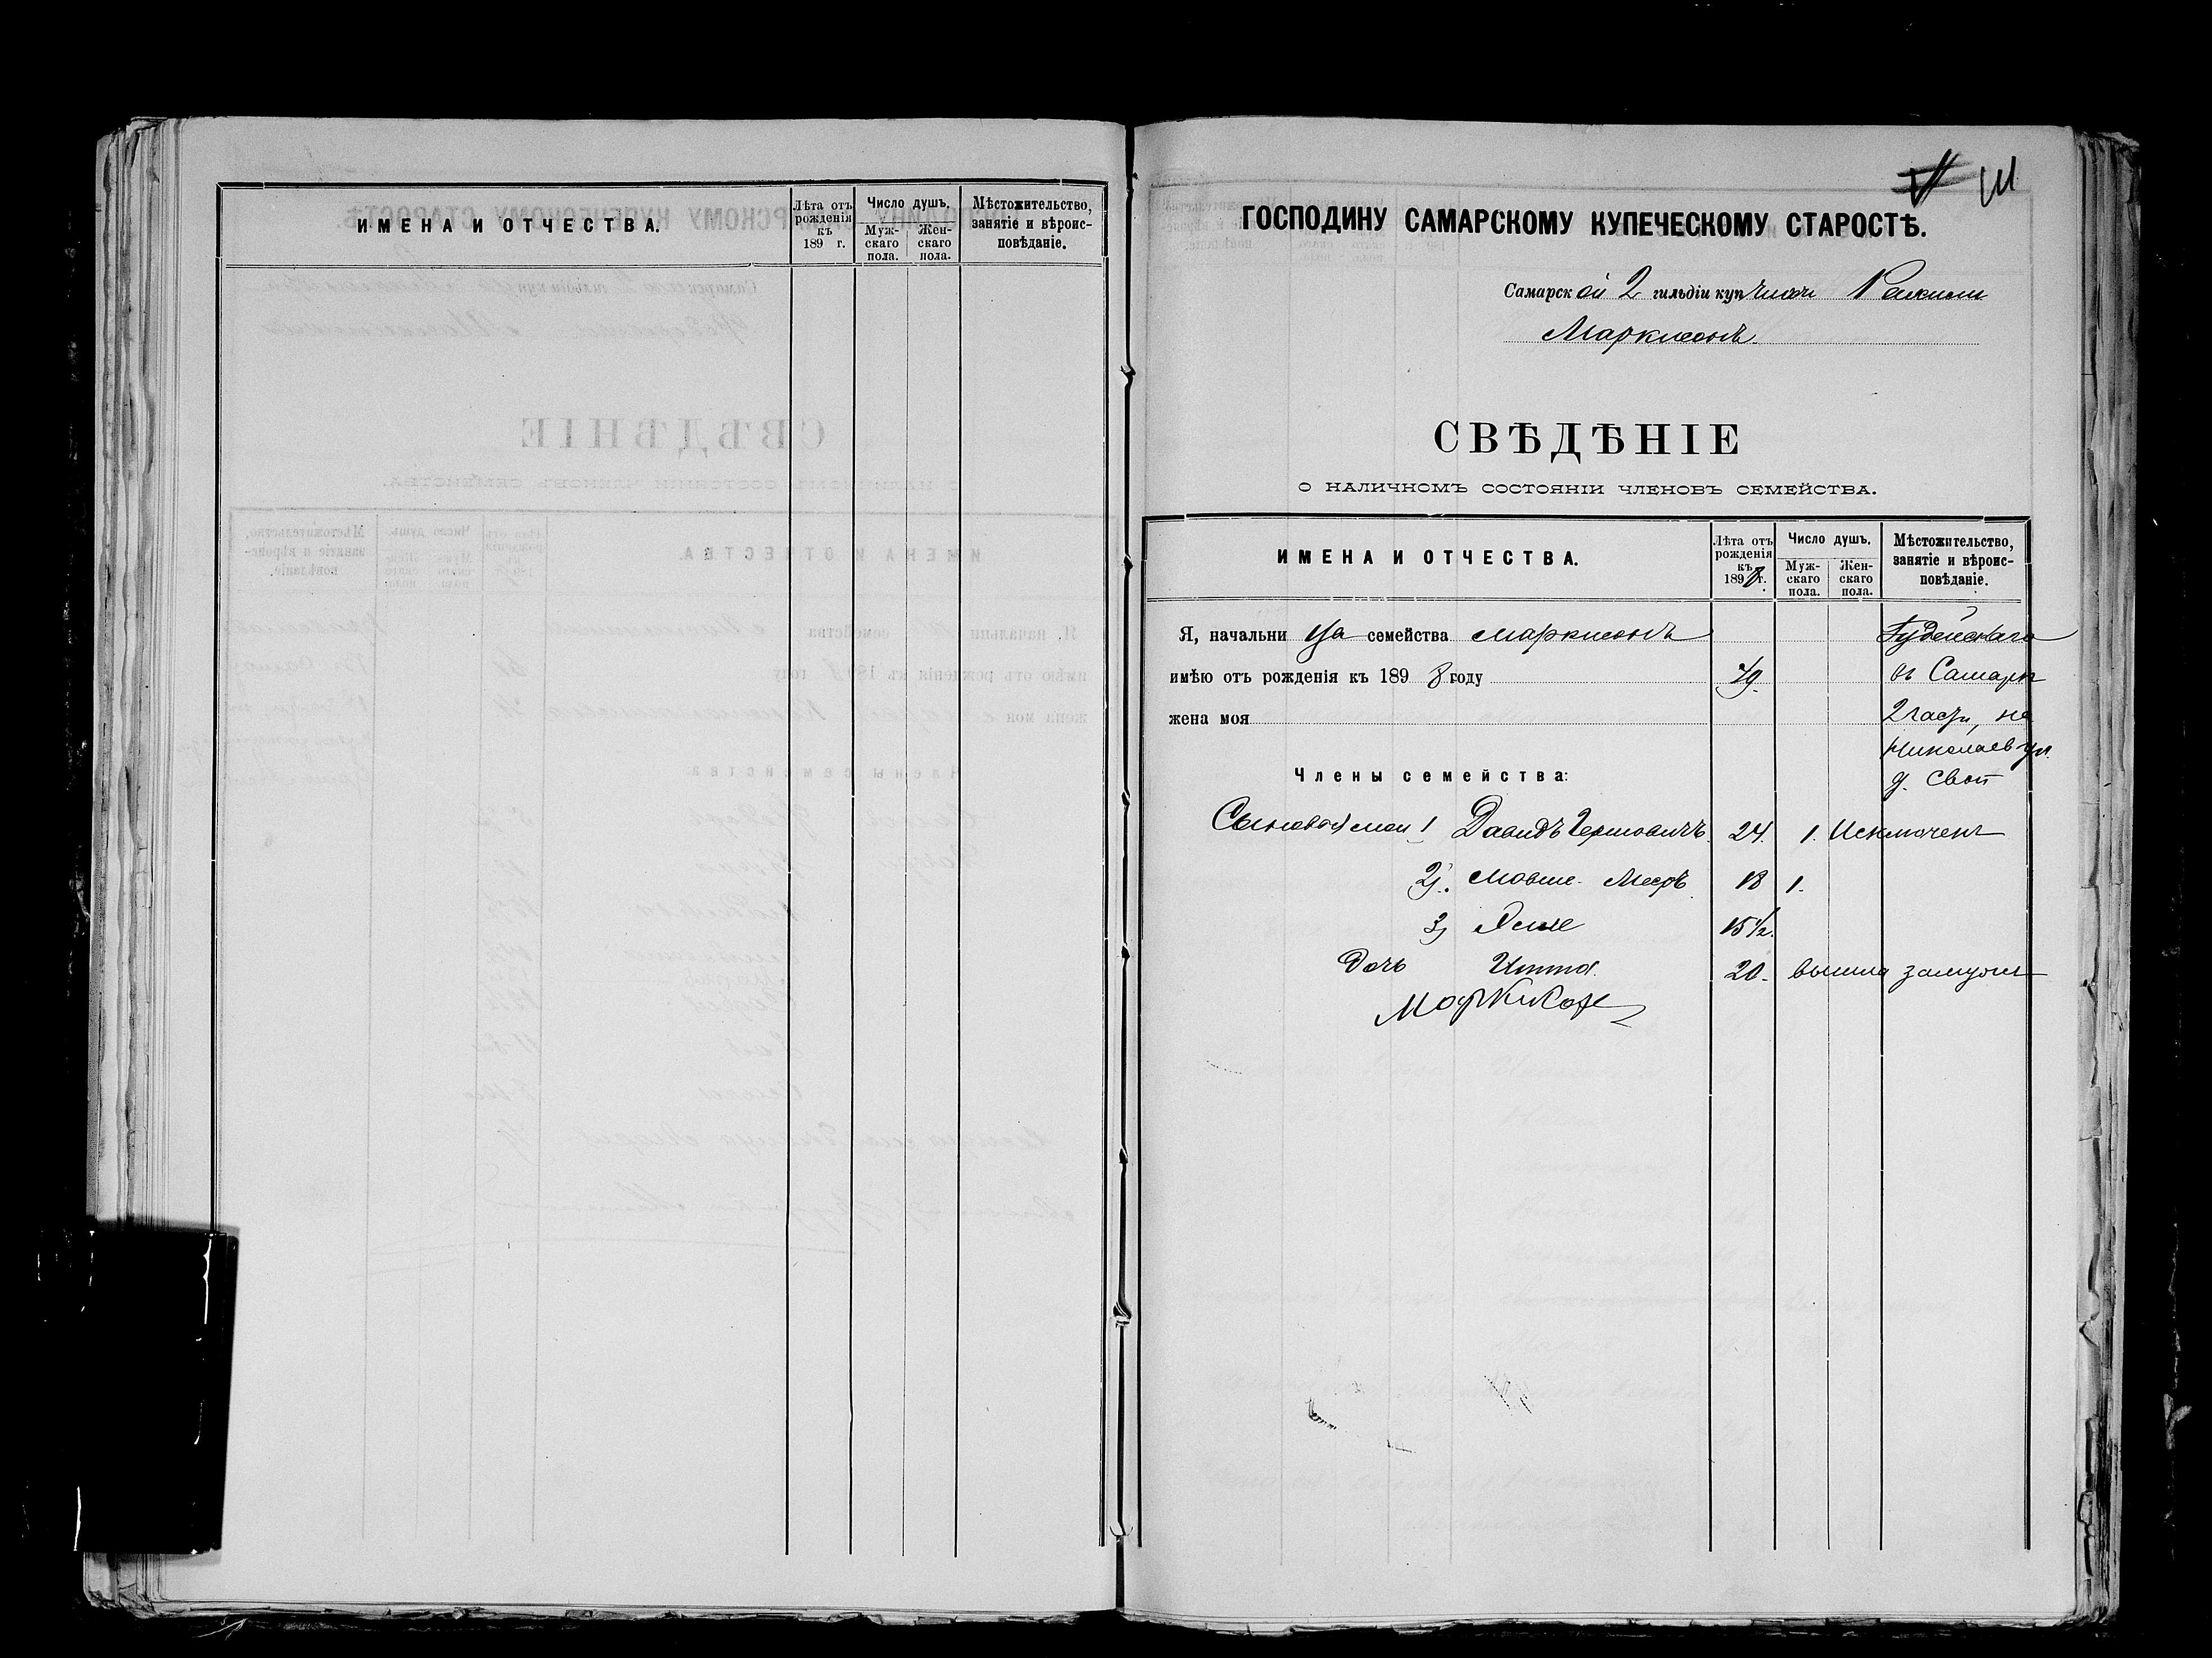 ИМЕНА И ОТЧЕСТВА.
Лѣта отъ рожденія къ 189 г.
Число душъ.
Муж-скаго пола.
Жен-скаго пола.
Мѣстожительство, занятіе и вѣроис-повѣданіе.
111
ГОСПОДИНУ САМАРСКОМУ КУПЕЧЕСКОМУ СТАРОСТѢ.
Самарской 2 гильдіи куп
Маркисонъ
СВѢДѢНІЕ
О НАЛИЧНОМЪ СОСТОЯНІИ ЧЛЕНОВЪ СЕМЕЙСТВА.
ИМЕНА И ОТЧЕСТВА.
Лѣта отъ рожденія къ 1898 г.
Число душъ.
Муж-скаго пола.
Жен-скаго пола.
Мѣстожительство, занятіе и вѣроис-повѣданіе.
Я, начальница семейства Маркисонъ Іудейскаго
имѣю отъ рожденія къ 1898 году 49. въ Самарѣ
жена моя 2 части, на
Николаев ул.
Члены семейства: д. свой
Сыновья мои 1 Давидъ Гершовичъ. 24. 1. Исключенъ
2). Мовше-Мееръ 18 1.
3) 15 1/2.
Дочь Итта. 20. вышла замужъ
Маркисон